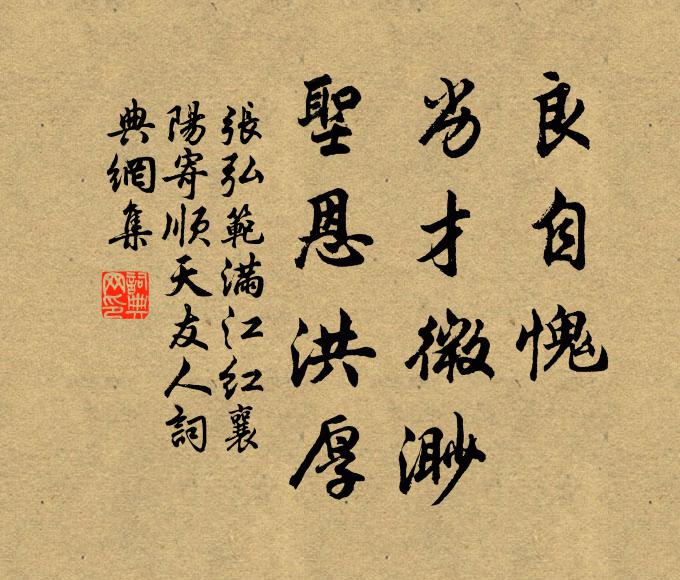 良自愧
劣才微渺
聖恩洪厚
張弘範滿江紅襄
陽寄順天友人詞
典網集
詞典網印